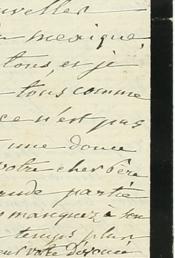 uvelles
mexique,
tous, et je
tous comme
ce n'est pas
une douce
votre cher père
ande partie
manquez à son
temps plus